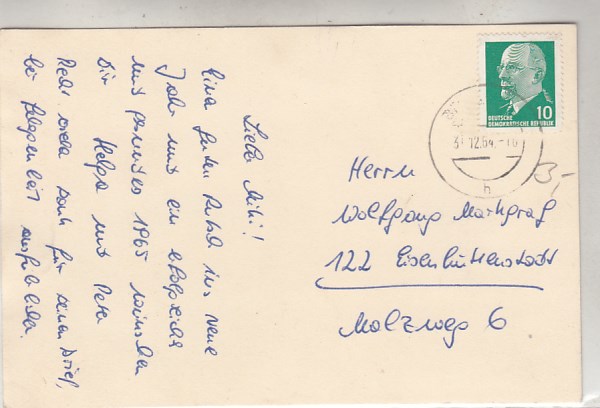 Liebe Miki!
Eina guten Rutsch ins neue
Jahr und ein erfolgreiches
und gesundes 1965 wünschen
Dir Helga und Peter
Recht vielen Dank für Deinen Brief,
bei Gelegenheit ausführlicher.
DEUTSCHE
DEMOKRATISCHE REPUBLIK
10
31.12.64.-16
h
3,-
Herrn
Wolfgang Markgraf
122 Eisenhüttenstadt
Malzweg 6